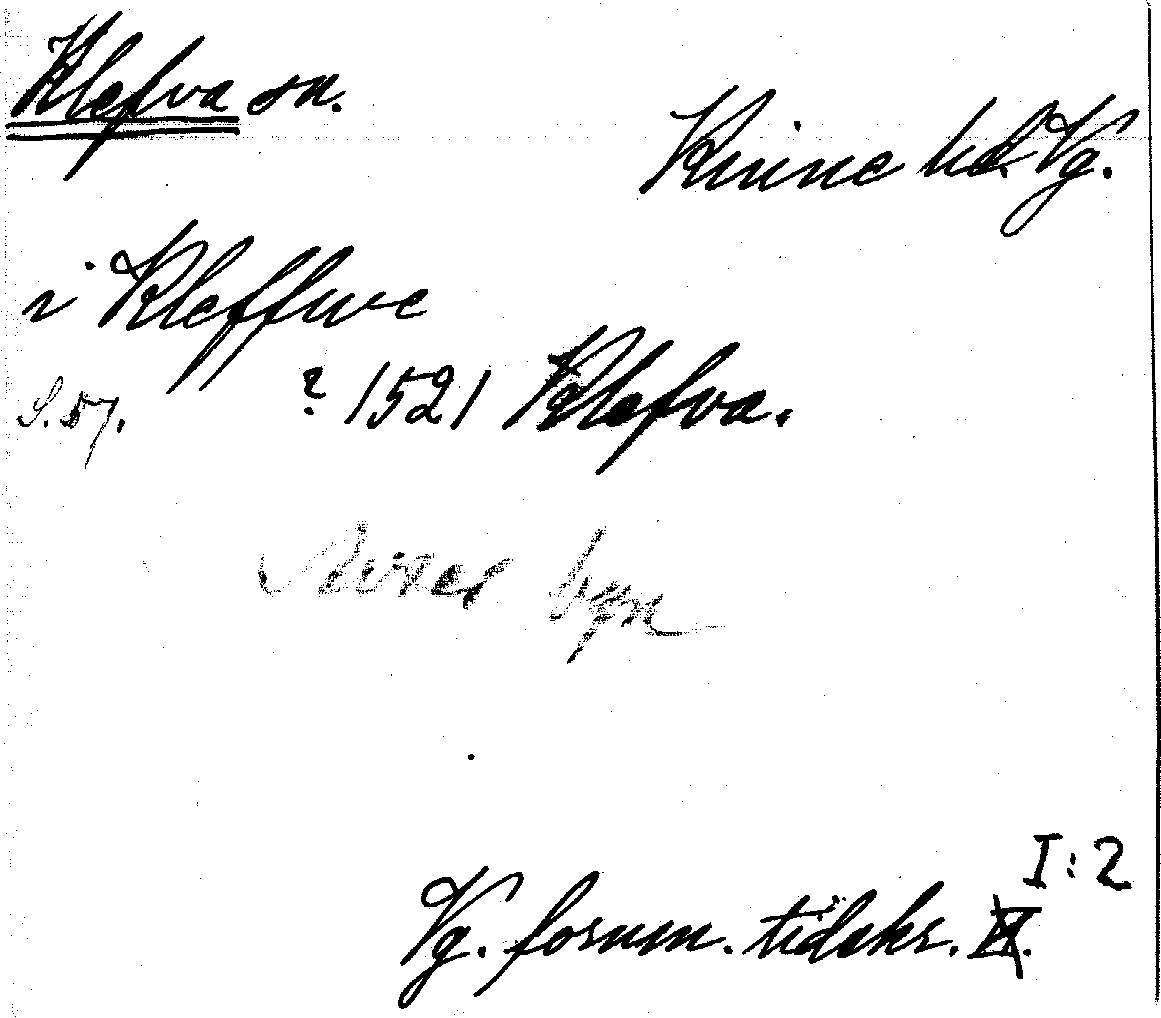 Klefva sn.
Kinne hd. Vg.
i Kleffwe
S. 57. ? 1521 Klefva.
byn
I:2
Vg. fornm. tidskr. II.